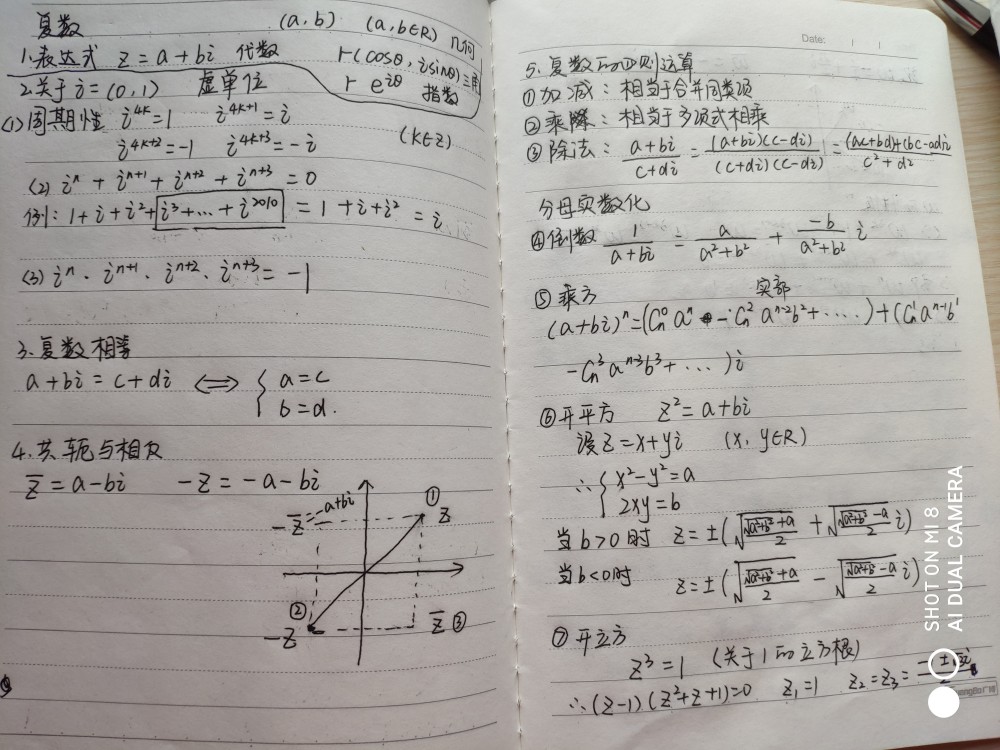 复数 (a,b) (a,b∈R) 几何
1.表达式 z=a+bi 代数 r(cosθ,isinθ)三角
r e^{iθ} 指数
2.关于i=(0,1) 虚单位
(1)周期性 i^{4k}=1 i^{4k+1}=i
i^{4k+2}=-1 i^{4k+3}=-i (k∈Z)
(2) i^n + i^{n+1} + i^{n+2} + i^{n+3} = 0
例: 1+i+i^2+i^3+…+i^{2010} = 1+i+i^2 = i
(3) i^n · i^{n+1} · i^{n+2} · i^{n+3} = -1
3.复数相等
a+bi=c+di ⟺ { a=c
b=d.
4.共轭与相反
z̄=a-bi -z=-a-bi
-z̄=-a+bi ① z
② -z z̄ ③
Date:
5.复数的四则运算
①加减:相当于合并同类项
②乘除:相当于多项式相乘
③除法: (a+bi)/(c+di) = (a+bi)(c-di)/(c+di)(c-di) = (ac+bd)+(bc-ad)i/c^2+d^2
分母实数化
④倒数 1/(a+bi) = a/(a^2+b^2) + -b/(a^2+b^2) i
⑤乘方 实部
(a+bi)^n=(C_n^0 a^n - C_n^2 a^{n-2}b^2+……)+(C_n^1 a^{n-1}b^1
-C_n^3 a^{n-3}b^3+…)i
⑥开平方 z^2=a+bi
设z=x+yi (x,y∈R)
∴{ x^2-y^2=a
2xy=b
当b>0时 z=±(√((√(a^2+b^2)+a)/2) + √((√(a^2+b^2)-a)/2) i)
当b<0时 z=±(√((√(a^2+b^2)+a)/2) - √((√(a^2+b^2)-a)/2) i)
⑦开立方
z^3=1 (关于1的立方根)
∴(z-1)(z^2+z+1)=0 z_1=1 z_2=z_3=
SHOT ON MI 8
AI DUAL CAMERA